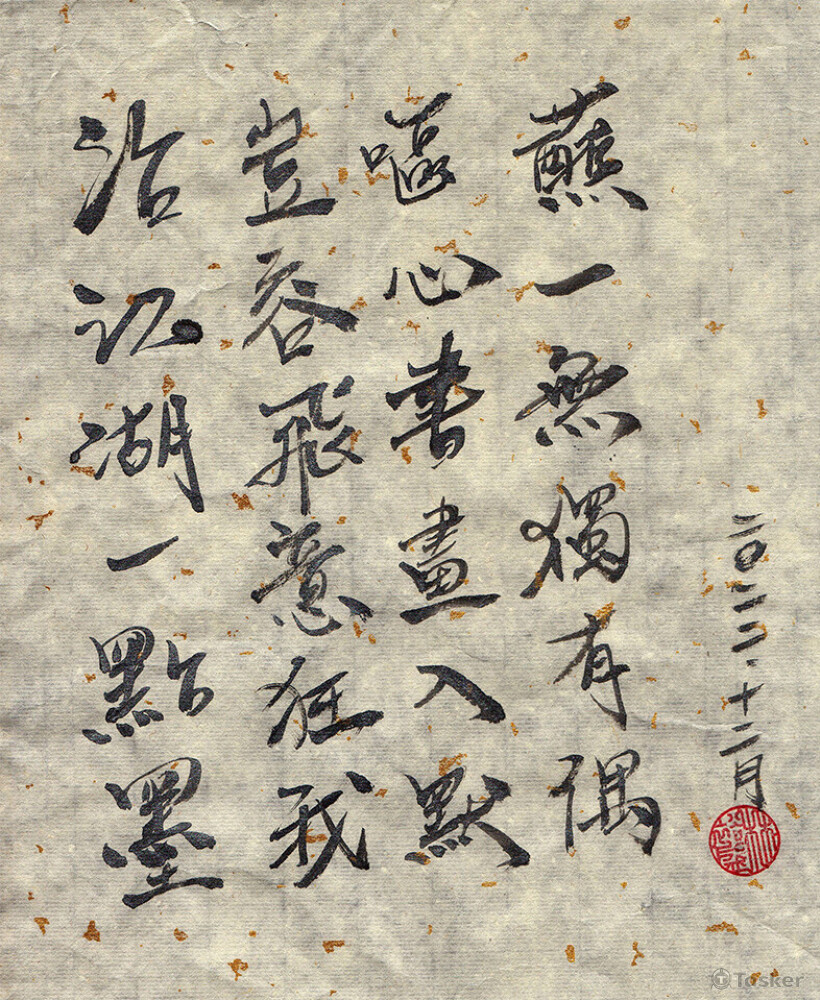 沾江湖一點墨
豈容飛意狂我
嘔心書畫入默
蘸一無獨有偶
二〇二二·十二月
Tasker